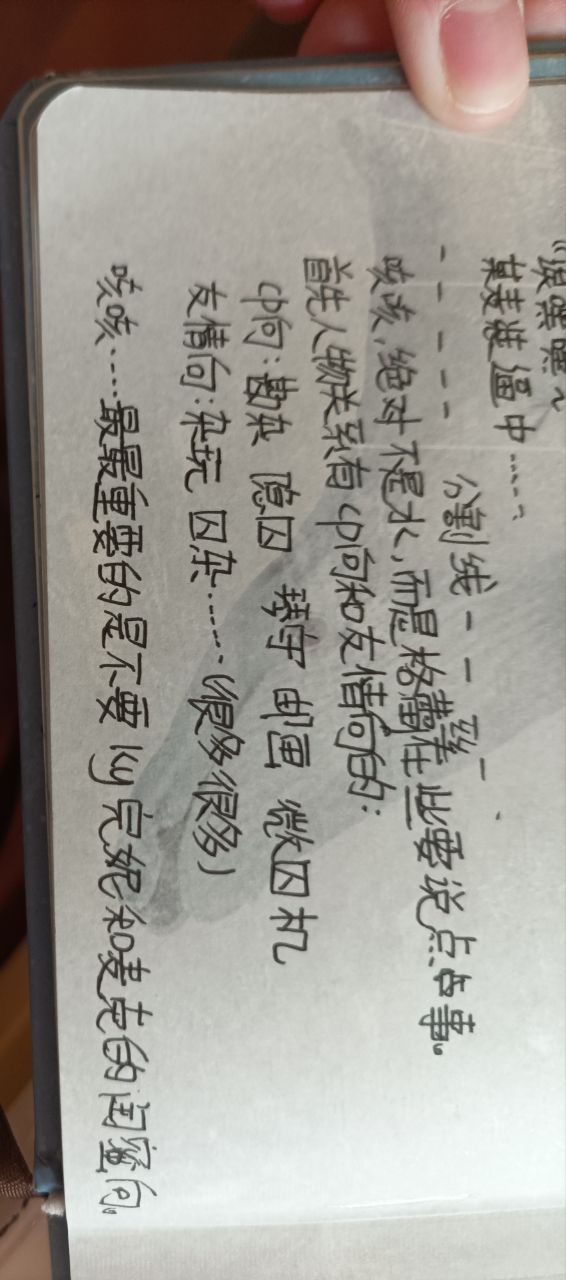 嘿嘿~
某麦装逼中……
- - - - 分割线 - - -
咳咳,绝对不是水,而是格蕾在此要说点点事。
首先人物关系有cp向和友情向的:
cp向:勘杂 隐囚 琴宇 邮画 微囚机
友情向:杂玩 囚杂……(很多很多)
咳咳……最最重要的是不要ky完妮和麦克的闺蜜向。